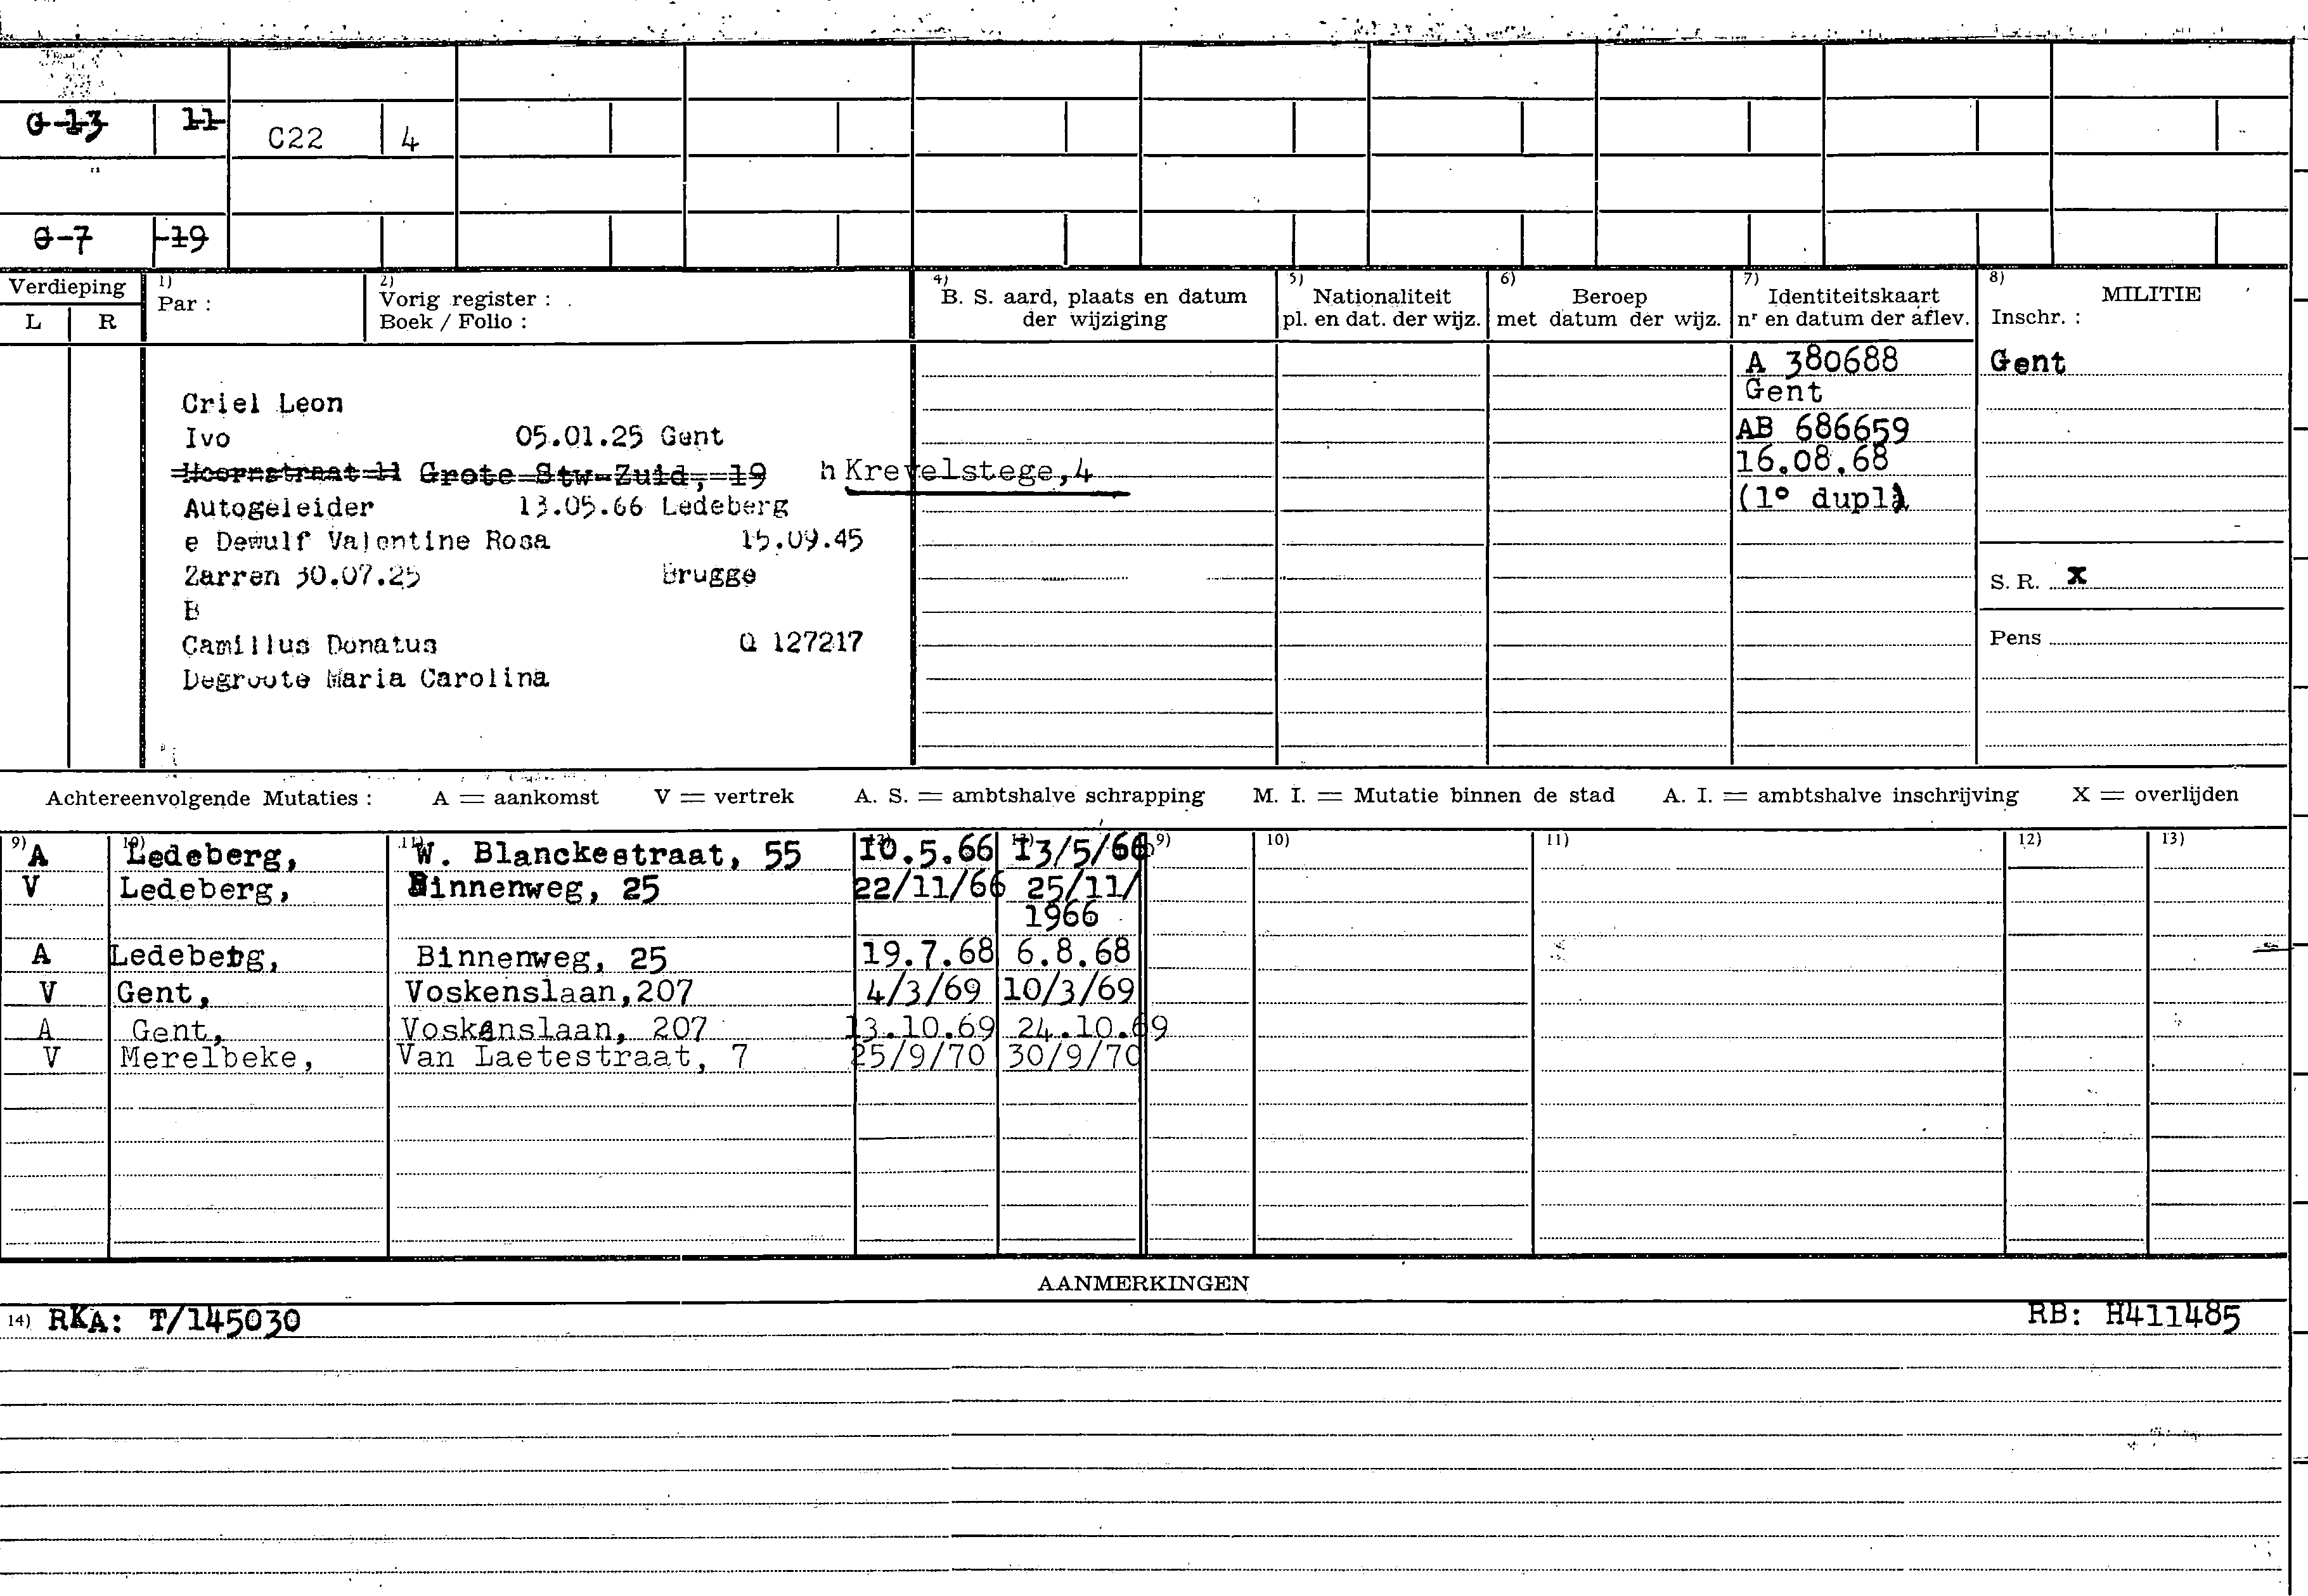 G-13 11 C22 4
G-7 -19
Verdieping
L R
1) Par :
2) Vorig register :
Boek / Folio :
4) B. S. aard, plaats en datum
der wijziging
5) Nationaliteit
pl. en dat. der wijz.
6) Beroep
met datum der wijz.
7) Identiteitskaart
nr en datum der aflev.
8) MILITIE
Inschr. :
Criel Leon
Ivo 05.01.25 Gent
Hoernstraat 11 Grote Stw-Zuid, 19 h Krevelstege,4
Autogeleider 13.05.66 Ledeberg
e Dewulf Valentine Rosa 15.09.45
Zarren 30.07.25 Brugge
B
Camillus Donatus Q 127217
Degroote Maria Carolina
A 380688
Gent
AB 686659
16.08.68
(1° dupl)
Gent
S. R. X
Pens
Achtereenvolgende Mutaties : A = aankomst V = vertrek A. S. = ambtshalve schrapping M. I. = Mutatie binnen de stad A. I. = ambtshalve inschrijving X = overlijden
9) 10) 11) 12) 13) 9) 10) 11) 12) 13)
A Ledeberg, W. Blanckestraat, 55 10.5.66 13/5/66
V Ledeberg, Binnenweg, 25 22/11/66 25/11/
1966
A Ledeberg, Binnenweg, 25 19.7.68 6.8.68
V Gent, Voskenslaan,207 4/3/69 10/3/69
A Gent, Voskenslaan, 207 13.10.69 24.10.69
V Merelbeke, Van Laetestraat, 7 25/9/70 30/9/70
AANMERKINGEN
14) RKA: T/145030 RB: H411485